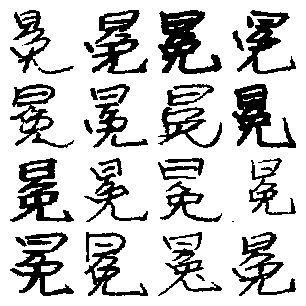 冕冕冕冕
冕冕冕冕
冕冕冕冕
冕冕冕冕